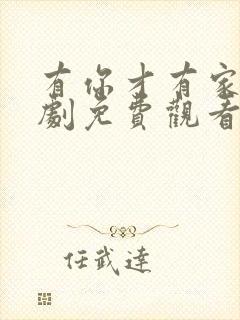 有你才有家
劇免費觀看
任武達